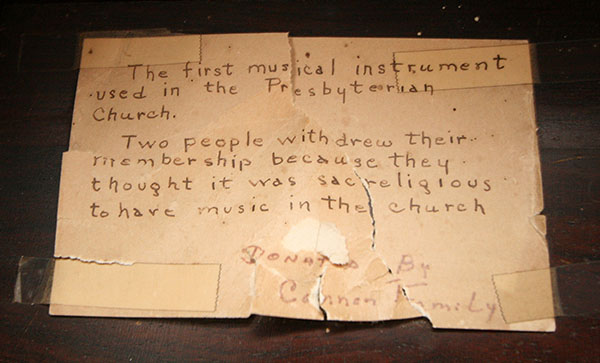 The first musical instrument
used in the Presbyterian
Church.
Two people withdrew their
membership because they
thought it was sacreligious
to have music in the church
DONATED By
Cannon Family